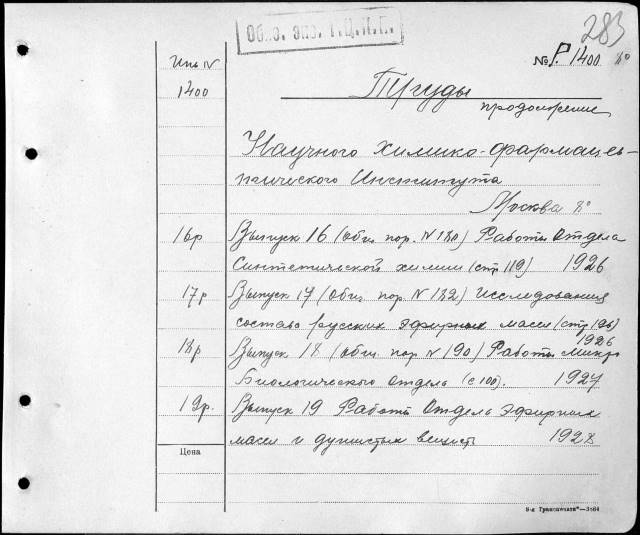 Обяз. экз. Г.Ц.К.П.
283
№ Р. 1400 8°
Шк IV
1400
Труды
продолжение
Научного химико-фармацев-
тического Института
Москва 8°
16р Выпуск 16 (общ. пор. N 180) Работы Отдела
Синтетической химии (стр 119) 1926
17р Выпуск 17 (общ. пор. N 182) Исследования
состава русских эфирных масел (стр 126)
1926
18р Выпуск 18 (общ. пор N 190) Работы микро
Биологического отдела (с 100). 1927
19р. Выпуск 19 Работы Отдела эфирных
масел и душистых веществ 1928
Цена
9-я Транспечати"—3564